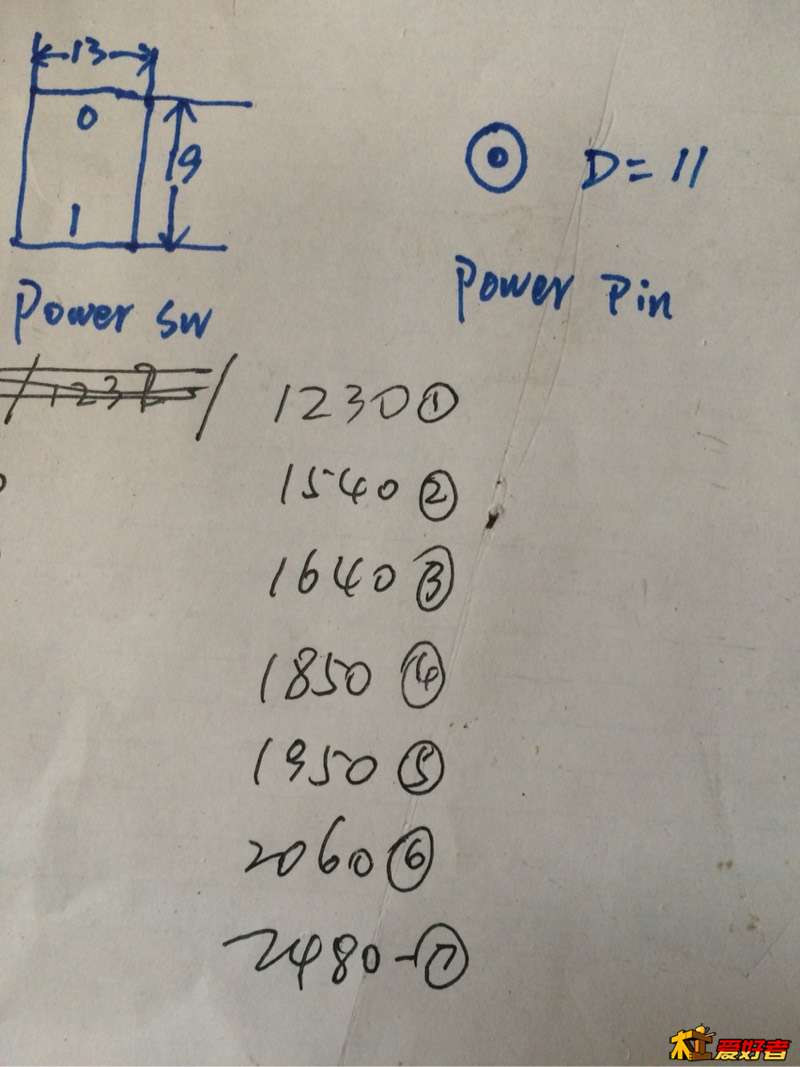 13
0
19
1
D=11
Power SW
Power Pin
1230①
1540②
1640③
1850④
1950⑤
2060⑥
2480-⑦
杠爱好者